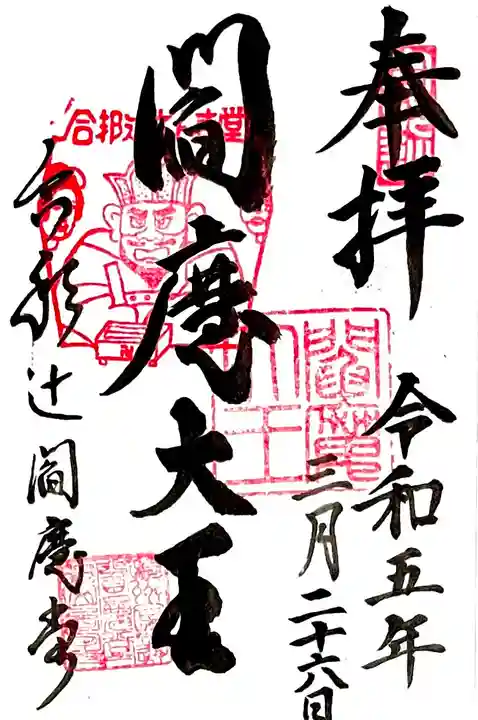 奉拝
令和五年
三月二十六日
閻魔大王
合邦辻閻魔堂
閻魔大王